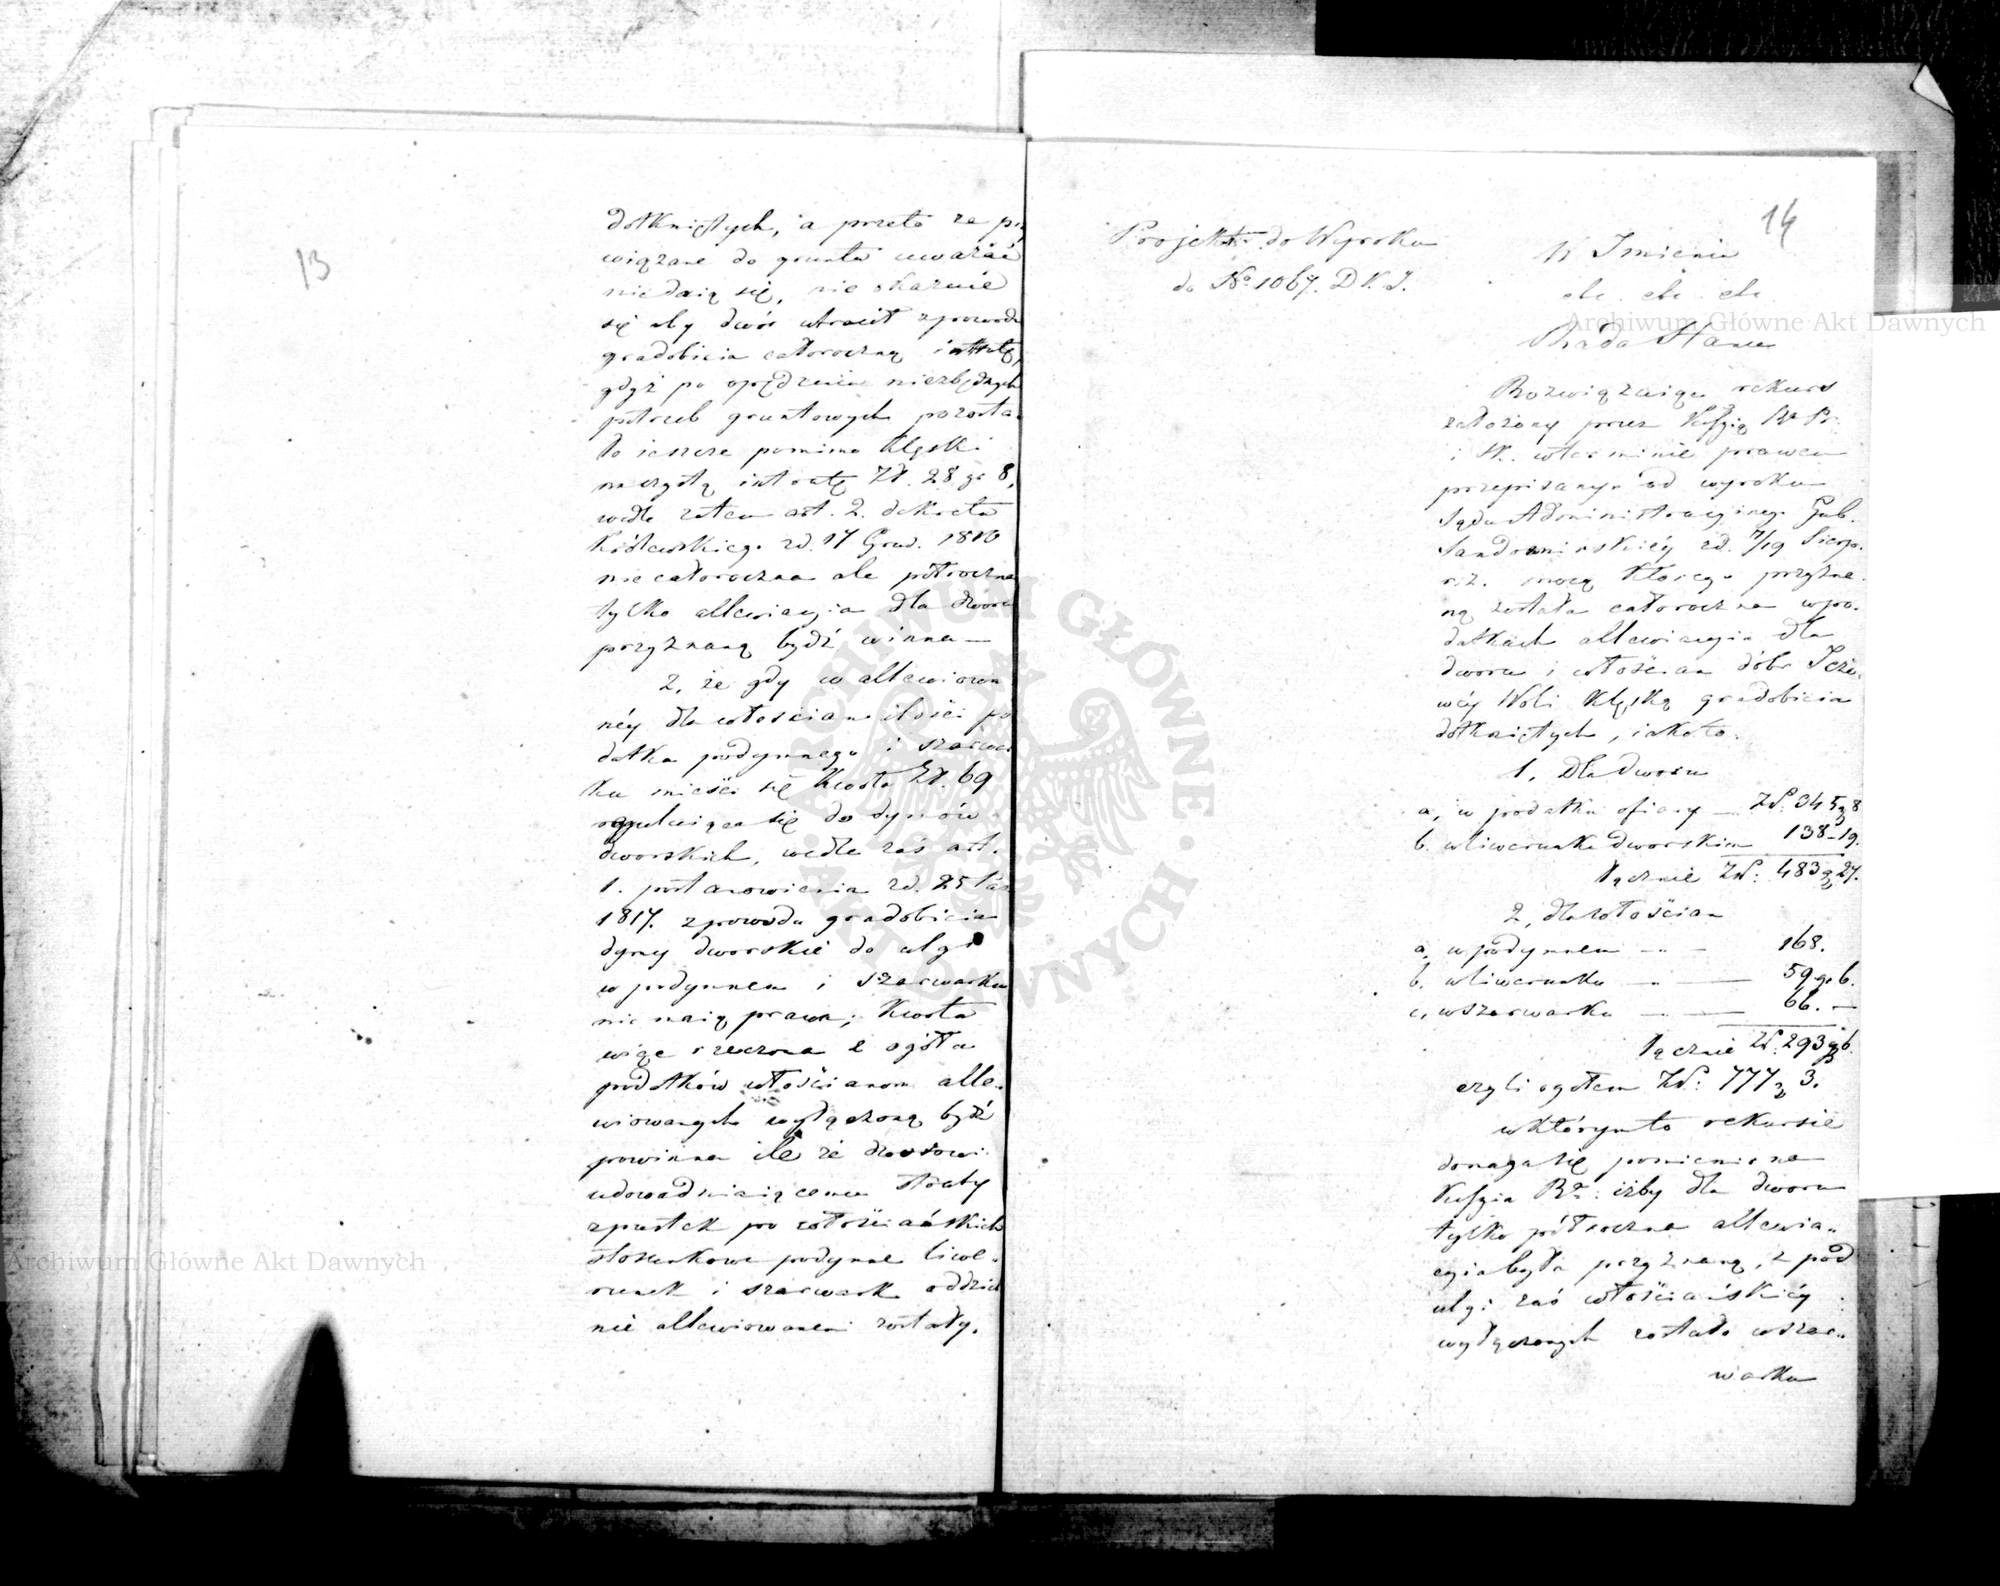 13
dotkniętych, a przeto za po
wiązane do gruntu uważać
niedaią się, nie okazuie
się aby dwór utracił z powodu
gradobicia całoroczną intratę,
gdyż po opędzeniu niezbędnych
potrzeb gruntowych pozosta-
ło ieszcze pomimo klęski
na czystą intratę Zł. 28 gr 8,
wedle zatem art. 2. dekretu
Królewskiego zd. 17 Grud. 1810
nie całoroczna ale półroczna
tylko allewiacyia dla dworu
przyznaną bydź winna —
2, że gdy w allewiowa
néy dla włościan ilości po
datku podymnego i szarwar
ku mieści się kwota Zł. 69
regulująca się do dymów
dworskich, wedle zaś art.
1. postanowienia zd. 25 Paź
1817. z powodu gradobicia
dymy dworskie do ulgi
w podymnem i szarwarku
nie maią prawa; kwota
więc rzeczona z ogółu
podatków włościanom alle-
wiowanych wyłączoną bydź
powinna ile że dworowi
udowadniaiącemu straty
z pustek po włościańskich
stosunkowe podymne liwe-
runek i szarwark oddziel
nie allewiowanemi zostały.
14
Projekt do Wyroku
do No 1067. D.K.J.
W Imieniu
etc. etc. etc.
Rada Stanu
Rozwiązuiąc rekurs
założony przez Kośzią Rz. Pr.
i Sk. w terminie prawem
przepisanym od wyroku
Sądu Administracyjnego Gub.
Sandomirskiéy zd. 7/19 Sierp.
r.z. mocą którego przyzna-
ną została całoroczna w po-
datkach allewiacyia dla
dworu i włościan dóbr Jeżo-
wéy Woli klęską gradobicia
dotkniętych, iako to:
1, Dla dworu
a, w podatku ofiary — Zł: 345 g 8
b. w liwerunku dworskim 138 - 19.
Łącznie Zł: 483 g 27.
2, dla włościan
a, w podymnem — 168.
b. w liwerunku — 59 gr 6.
c, w szarwarku — 66. —
Łącznie Zł: 293 g 6.
czyli ogółem Zł: 777 g 3.
w którym to rekursie
domaga się pomieniona
Kośzia Rz: iżby dla dworu
tylko półroczna allewia-
cyia była przyznaną, z pod
ulgi zaś włościańskiéy
wyłączonych zostało w szar-
warku